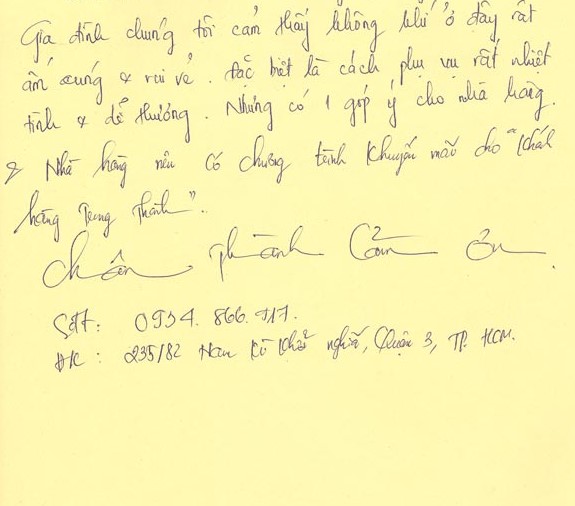 Gia đình chúng tôi cảm thấy không khí ở đây rất
ấm cúng & vui vẻ. Đặc biệt là cách phục vụ rất nhiệt
tình & dễ thương. Nhưng có 1 góp ý cho nhà hàng.
Nhà hàng nên có chương trình khuyến mãi cho "khách
hàng Trung Thành".
Chân Thành Cảm Ơn
SĐT: 0934. 866. 717.
ĐC: 235/82 Nam Kì Khởi nghĩa, Quận 3, TP. HCM.